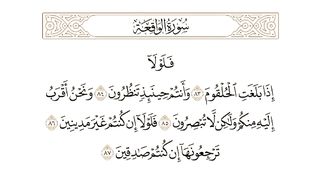 سُورَةُ الوَاقِعَةِ
فَلَوۡلَآ
إِذَا بَلَغَتِ ٱلۡحُلۡقُومَ ٨٣ وَأَنتُمۡ حِينَئِذٖ تَنظُرُونَ ٨٤ وَنَحۡنُ أَقۡرَبُ
إِلَيۡهِ مِنكُمۡ وَلَٰكِن لَّا تُبۡصِرُونَ ٨٥ فَلَوۡلَآ إِن كُنتُمۡ غَيۡرَ مَدِينِينَ ٨٦
تَرۡجِعُونَهَآ إِن كُنتُمۡ صَٰدِقِينَ ٨٧